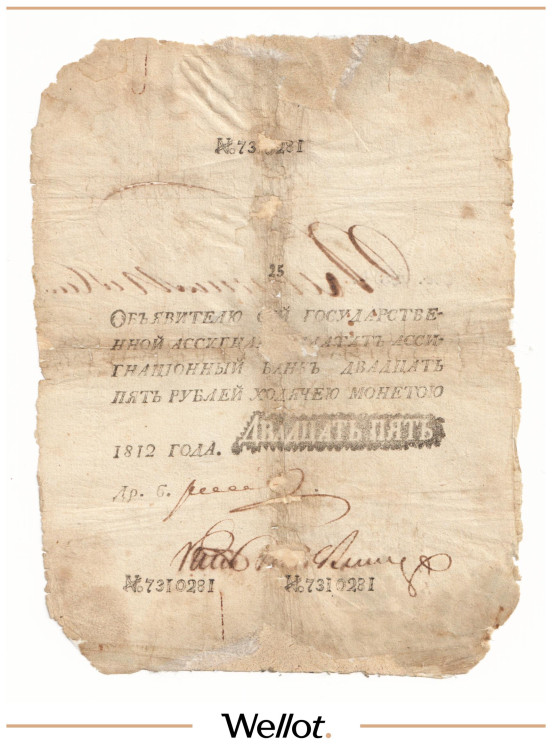 №7310281
25
ОБЪЯВИТЕЛЮ СЕЙ ГОСУДАРСТВЕ-
ННОЙ АССИГНА. ПЛАТИТЪ АССИ-
ГНАЦІОННЫЙ БАНКЪ ДВАДЦАТЬ
ПЯТЬ РУБЛЕЙ ХОДЯЧЕЮ МОНЕТОЮ
ДВАДЦАТЬ ПЯТЬ
1812 ГОДА.
Др. б.
№7310281 №7310281
Wellot.